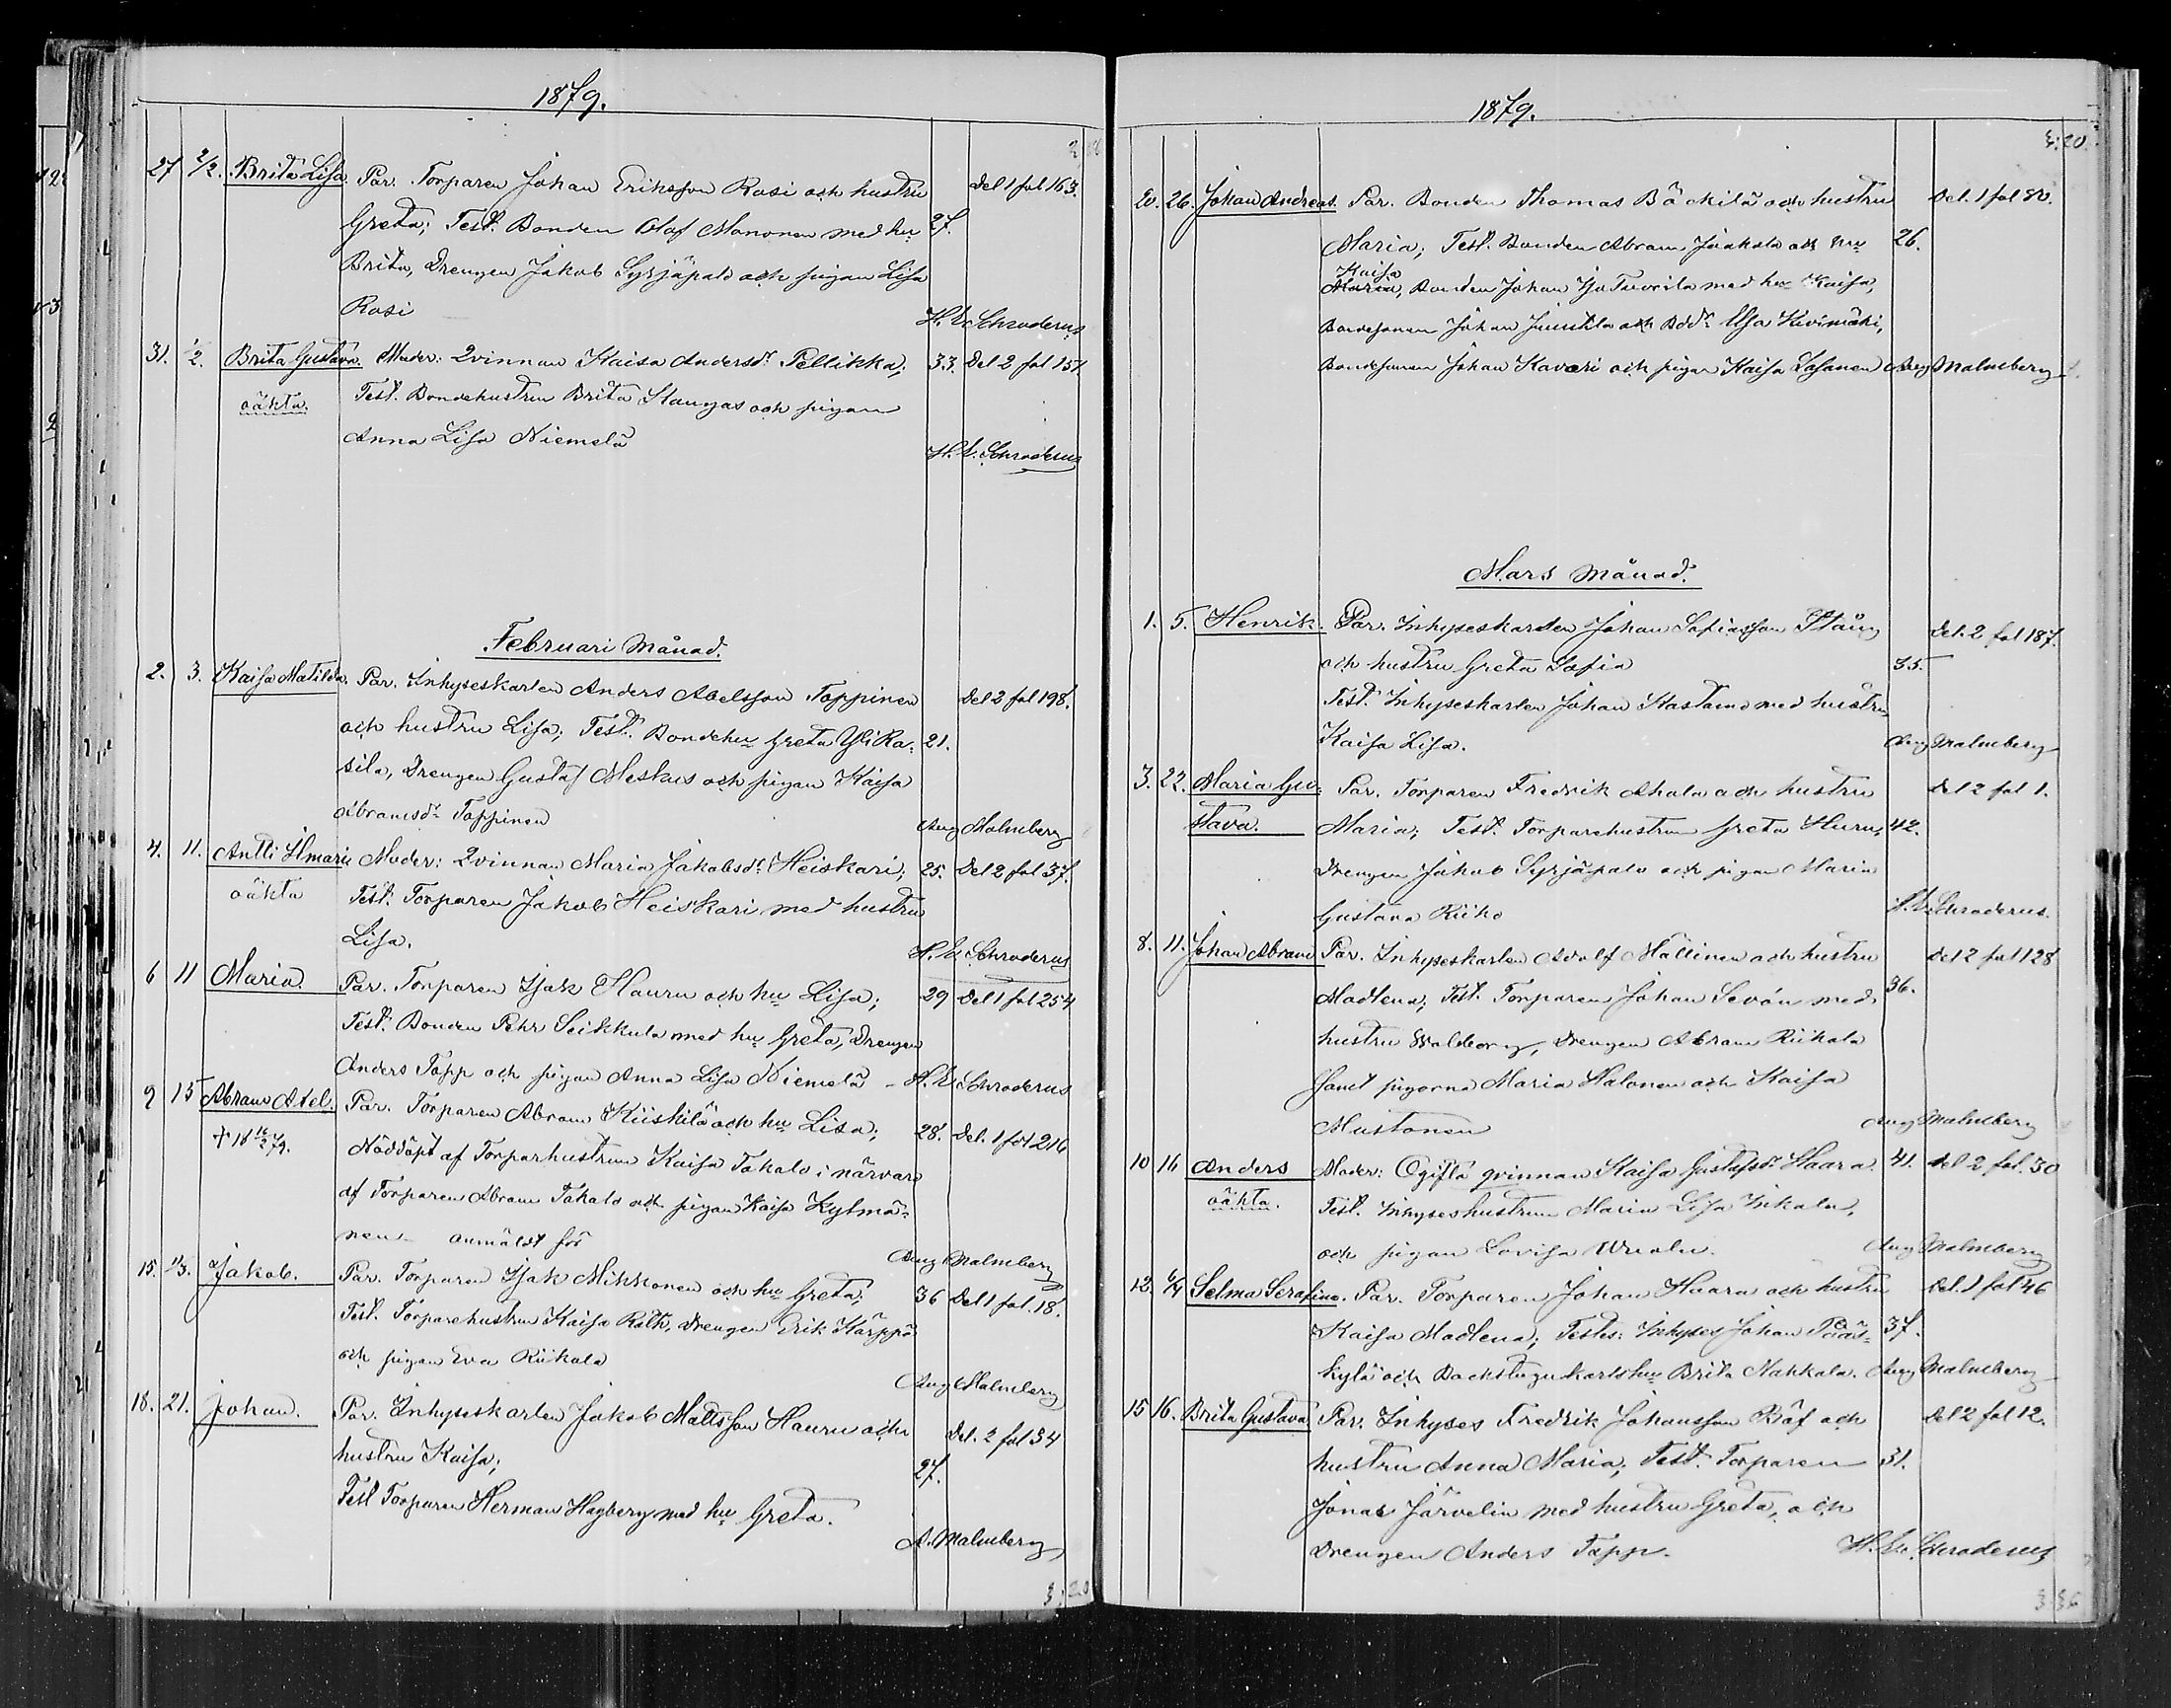 1879.
27 2/2. Brita Lisa. Par. Torparen Johan Eriksson Rasi och hustru Del 1 fol 163.
Greta; Test. Bonden Olof Mononen med hu 27.
Brita, Drengen Jakob Syrjäpalo och pigan Lisa
Rasi H. L. Schroderus
31. 1/2. Brita Gustava. Moder: Qvinnan Kaisa Andersdr Pellikka; 33. Del 2 fol 151.
oäkta. Test. Bondehustrun Brita Kangas och pigan
Anna Lisa Niemelä
H. L. Schroderus
Februari Månad.
2. 3. Kaisa Matilda. Par. Inhyseskarlen Anders Abelsson Toppinen Del 2 fol 198.
och hustru Lisa; Test. Bondehu Greta Yli Ra= 21.
sila, Drengen Gustaf Meskus och pigan Kaisa
Abramsdr Toppinen Aug Malmberg
4. 11. Antti Ilmari Moder: Qvinnan Maria Jakobsdr Heiskari; 25. Del 2 fol 37.
oäkta Test. Torparen Jakob Heiskari med hustru
Lisa. H. L. Schroderus
6 11 Maria. Par. Torparen Isak Hauru och hu Lisa; 29 Del 1 fol 254
Test. Bonden Pehr Seikkula med hu Greta, Drengen
Anders Topp och pigan Anna Lisa Niemelä - H. L. Schroderus
9 15 Abram Axel. Par. Torparen Abram Kiiskilä och hu Lisa; 28. Del. 1 fol 216
+ 18 16/2 79. Nöddöpt af Torparhustrun Kaisa Takalo i närvaro
af Torparen Abram Takalo och pigan Kaisa Kylmä=
nen - anmäldt för Aug Malmberg
15. 1/3. Jakob. Par. Torparen Isak Mikkonen och hu Greta; 36 Del 1 fol. 18.
Test. Torparehustrun Kaisa Rath, Drengen Erik Karppa
och pigan Eva Riikola
Aug Malmberg
18. 21. Johan. Par. Inhyseskarlen Jakob Mattsson Hauru och Del. 2 fol 34
hustru Kaisa; 27.
Test Torparen Herman Hagberg med hu Greta.
A. Malmberg
3:20
1879.
3:20.
20. 26. Johan Andreas. Par. Bonden Thomas Bäckilä och hustru Del. 1 fol 80.
Maria; Test. Bonden Abram Jaakola och hu 26.
Kaisa
Maria, Bonden Johan Iso Tuorila med hu Kaisa,
Bondesonen Johan Junttila och Bdr Elsa Kivimäki,
Bondesonen Johan Kavari och pigan Kaisa Lasanen Aug Malmberg
Mars Månad.
1. 5. Henrik. Par. Inhyseskarlen Johan Sofiasson Stång Del. 2 fol 187.
och hustru Greta Sofia 35.
Test. Inhyseskarlen Johan Kastamo med hustru
Kaisa Lisa. Aug Malmberg
3. 22. Maria Gu= Par. Torparen Fredrik Ahola och hustru Del 2 fol 1.
stava. Maria; Test. Torparehustrun Greta Huru, 42.
Drengen Jakob Syrjäpalo och pigan Maria
Gustava Riiho H. L. Schroderus.
8. 11. Johan Abram Par. Inhyseskarlen Adolf Mällinen och hustru Del 2 fol 128
Madlena; Test. Torparen Johan Sevón med 36.
hustru Walborg, Drengen Abram Riikola
samt pigorna Maria Halonen och Kaisa
Mustonen Aug Malmberg
10 16 Anders Moder: Ogifta qvinnan Kaisa Gustafsdr Haara. 41. Del 2 fol. 30
oäkta. Test. Inhyseshustrun Maria Lisa Inkala,
och pigan Lovisa Aug Malmberg
12. 6/4 Selma Serafina. Par. Torparen Johan Haara och hustru Del. 1 fol 46
Kaisa Madlena; Testes: Inhyses Johan Pääs= 37.
kylä och Backstugukarlshu Brita Nakkala. Aug Malmberg
15 16. Brita Gustava. Par. Inhyses Fredrik Johansson Räf och Del 2 fol 12.
hustru Anna Maria; Test. Torparen 31.
Jonas Järvelin med hustru Greta, och
Drengen Anders Topp. H. L. Schroderus
3:36